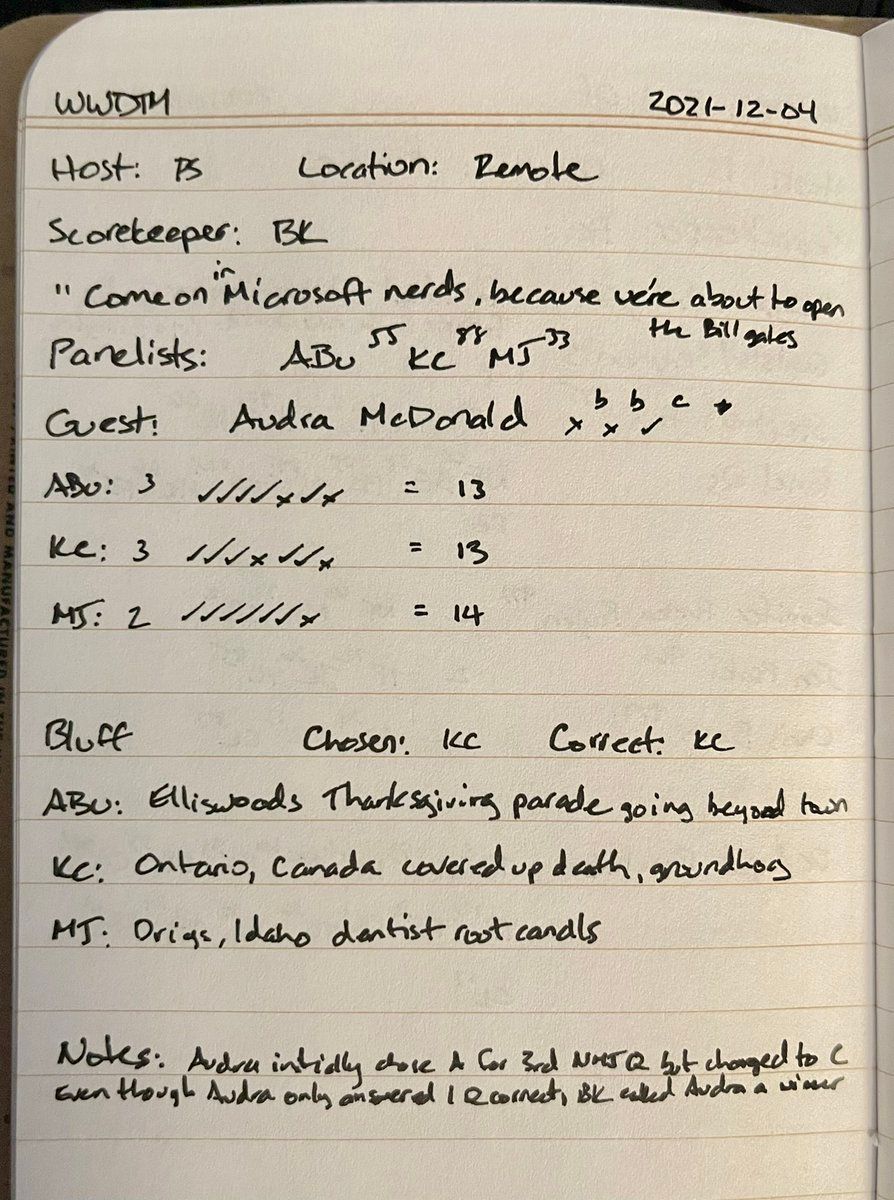 WWDTM 2021-12-04
Host: PS Location: Remote
Scorekeeper: BK
" Come on in Microsoft nerds, because we're about to open
the Bill gates
Panelists: ABu 55 KC 88 MJ 33
Guest: Audra McDonald x b x b ✓ c *
ABu: 3 ✓✓✓✓x✓x = 13
KC: 3 ✓✓✓x✓✓x = 13
MJ: 2 ✓✓✓✓✓✓x = 14
Bluff Chosen: KC Correct: KC
ABu: Elliswoods Thanksgiving parade going beyond town
KC: Ontario, Canada covered up death, groundhog
MJ: Drigs, Idaho dentist root canals
Notes: Audra initially chose A for 3rd NMJ Q but changed to C
Even though Audra only answered 1 Q correct, BK called Audra a winner
PRINTED AND MANUFACTURED IN THE